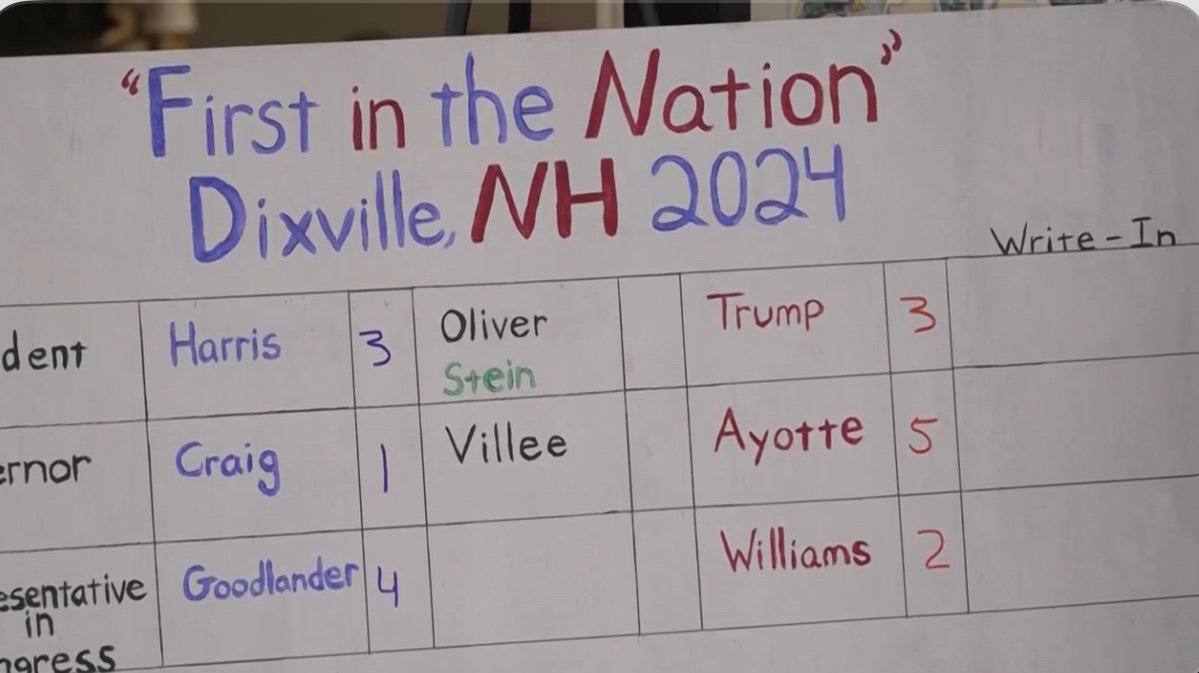 "First in the Nation"
Dixville, NH 2024
Write-In
dent Harris 3 Oliver Trump 3
Stein
ernor Craig 1 Villee Ayotte 5
esentative Goodlander 4 Williams 2
in
ngress